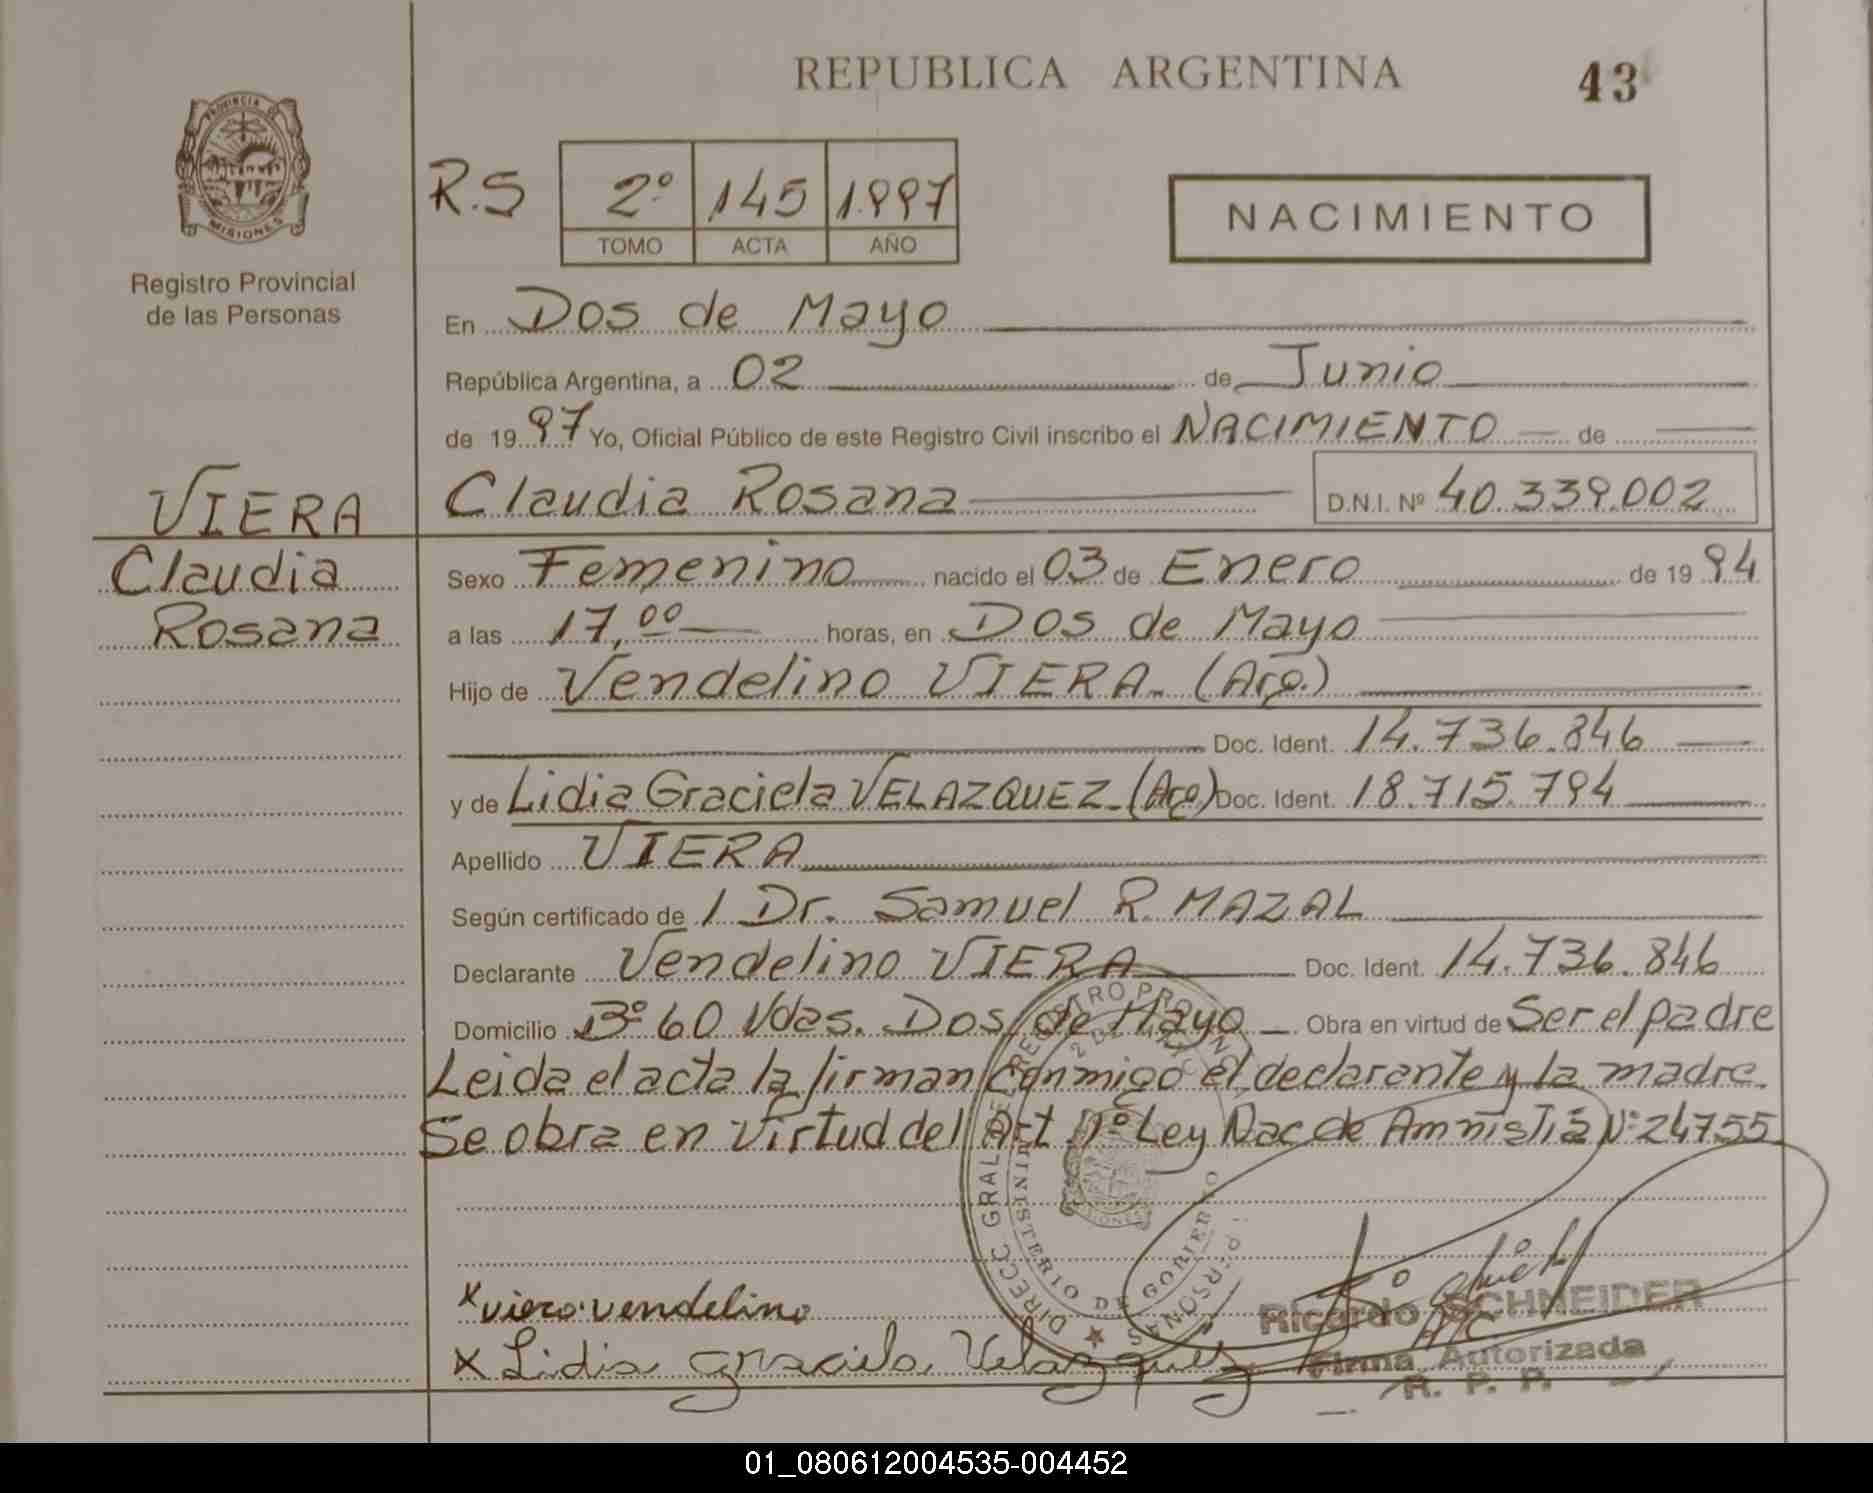 REPUBLICA ARGENTINA
43
PROVINCIA DE
MISIONES
Registro Provincial
de las Personas
R.S
2º 145 1.997
TOMO ACTA AÑO
NACIMIENTO
En Dos de Mayo
República Argentina, a 02 de Junio
de 1997 Yo, Oficial Público de este Registro Civil inscribo el NACIMIENTO de
VIERA
Claudia Rosana D.N.I. Nº 40.339.002
Claudia
Rosana
Sexo Femenino nacido el 03 de Enero de 1994
a las 17,00 horas, en Dos de Mayo
Hijo de Vendelino VIERA. (Arg.)
Doc. Ident. 14.736.846
y de Lidia Graciela VELAZQUEZ. (Arg) Doc. Ident. 18.715.794
Apellido VIERA
Según certificado de 1 Dr. Samuel R. MAZAL
Declarante Vendelino VIERA Doc. Ident. 14.736.846
Domicilio Bº 60 Vdas. Dos de Mayo Obra en virtud de Ser el padre
Leida el acta la firman conmigo el declarante y la madre.
Se obra en virtud del Art 11º Ley Nac de Amnistia Nº 24755
DIRECC GRAL DEL REGISTRO PROVINC
PERSONAS
MINISTERIO DE GOBIERNO
2 DE MAYO
MISIONES
x viera vendelino
x Lidia graciela Velazquez
Ricardo SCHNEIDER
Firma Autorizada
R. P. P.
01_080612004535-004452